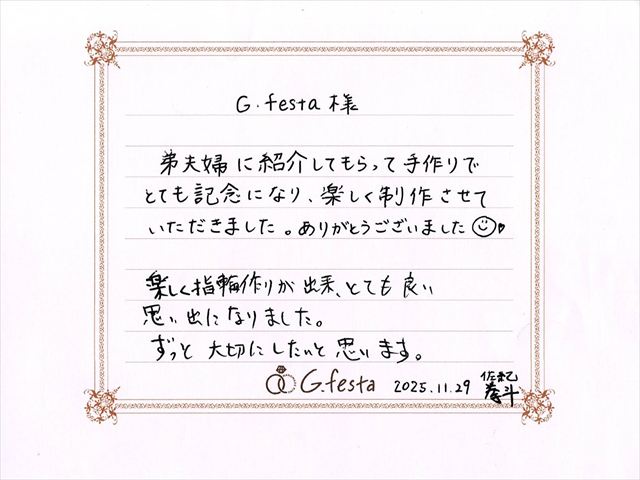 G.festa 様
弟夫婦に紹介してもらって手作りで
とても記念になり、楽しく制作させて
いただきました。ありがとうございました
楽しく指輪作りが出来、とても良い
思い出になりました。
ずっと大切にしたいと思います。
G.festa 2025.11.29 佐紀
斗